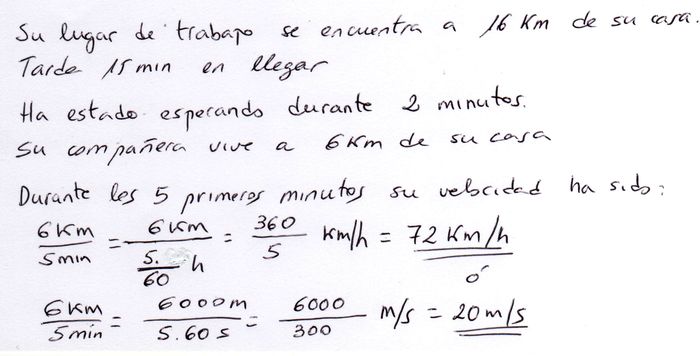 Su lugar de trabajo se encuentra a 16 Km de su casa.
Tarda 15 min en llegar
Ha estado esperando durante 2 minutos.
Su compañera vive a 6 Km de su casa
Durante los 5 primeros minutos su velocidad ha sido:
6 Km / 5 min = 6 Km / (5/60 h) = 360/5 Km/h = 72 Km/h
ó
6 Km / 5 min = 6000 m / 5.60 s = 6000/300 m/s = 20 m/s